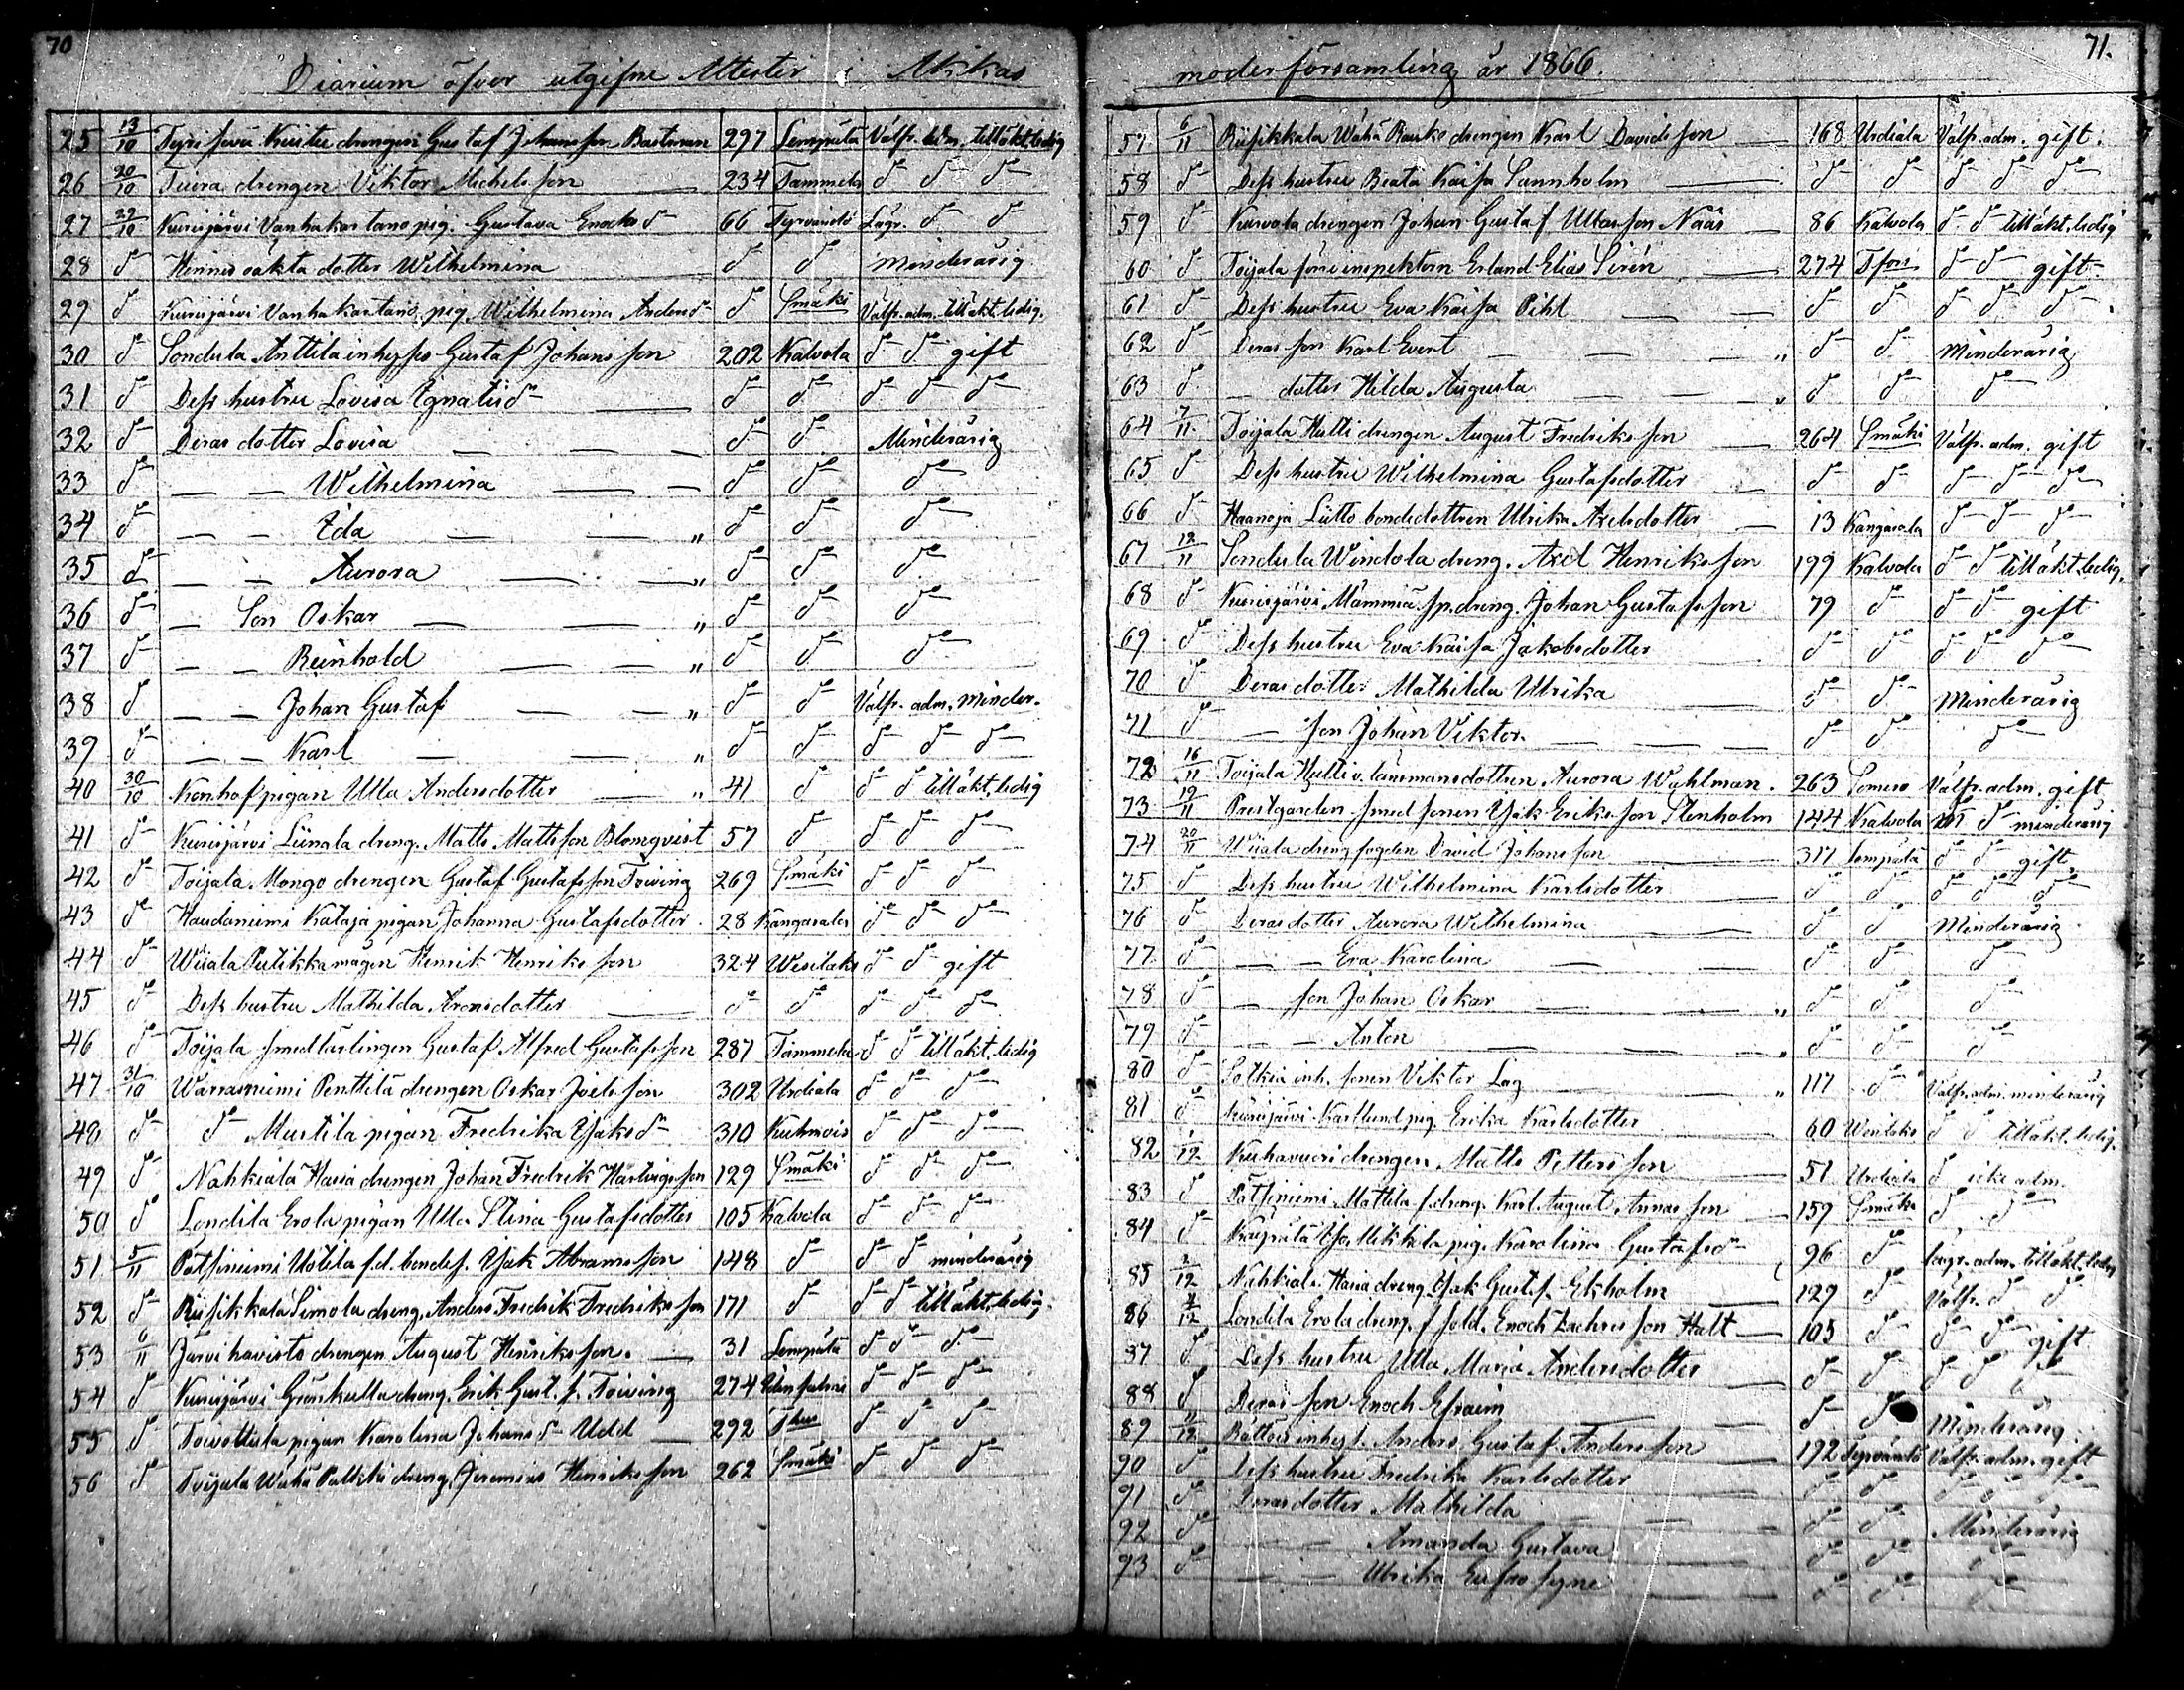 70
Diarium öfver utgifne Attester i Akkas
25 13/10 Kustu drengen Gustaf Johansson Bastman 297 Lempäla Välfr. adm. tillåkt. ledig
26 20/10 Tuira drengen Viktor Michelsson 234 Tammela do do do
27 29/10 Kurisjärvi Vanhakartano pig. Gustava Enochsdr 66 Tyrväntö Lägr. do do
28 do Hennes oäkta dotter Wilhelmina do do Minderårig
29 do Kurisjärvi Vanhakartano pig. Wilhelmina Andersdr do Smäki Välfr. adm. tillåkt. ledig.
30 do Sondula Anttila inhyses Gustaf Johansson 202 Kalvola do do gift
31 do Dess hustru Lovisa Ignatiidr do do do do do
32 do Deras dotter Lovisa — — — do do Minderårig
33 do — — Wilhelmina — — do do do
34 do — — Ida — — " do do do
35 do — — Aurora — — " do do do
36 do — Son Oskar — — " do do do
37 do — — Reinhold — — " do do do
38 do — — Johan Gustaf — — " do do Välfr. adm. Minder.
39 do — — Karl — — " do do do do do
40 30/10 Konhof pigan Ulla Andersdotter — " 41 do do do tillåkt. ledig
41 do Kurisjärvi Liinala dreng. Matts Mattsson Blomqvist 57 do do do do
42 do Toijala Mongo drengen Gustaf Gustafsson Toiving 269 Smäki do do do
43 do Haudaniemi Kataja pigan Johanna Gustafsdotter 28 Kangasala do do do
44 do Wiiala Putikka mågen Henrik Henriksson 324 Wesilaks do do gift
45 do Dess hustru Mathilda Aronsdotter do do do do do
46 do Toijala smedlärlingen Gustaf Alfred Gustafsson 287 Tammela do do tillåkt. ledig
47 31/10 Warrasniemi Penttilä drengen Oskar Joelsson 302 Urdiala do do do
48 do do Mustila pigan Fredrika Isaksdr 310 Kuhmois do do do
49 do Nahkiala Hasia drengen Johan Fredrik Hartvigsson 129 Smäki do do do
50 do Londila Erola pigan Ulla Stina Gustafsdotter 105 Kalvola do do do
51 5/11 Pätsiniemi Uotila f.d. bondes. Isak Abramsson 148 do do do minderårig
52 do Riisikkala Simola dreng. Anders Fredrik Fredriksson 171 do do do tillåkt. ledig.
53 6/11 Järvihavisto drengen August Henriksson. — 31 Lempäla do do do
54 do Kurisjärvi Grönkulla dreng. Erik Gust. s. Toiving 274 do do do
55 do Toivottula pigan Karolina Johansdr Udd — 292 do do do
56 do Toijala Wähä Palkki dreng. Jeremias Henriksson 262 Smäki do do do
moderförsamling år 1866.
71.
57 6/11 Riisikkala Wähä Rauko drengen Karl Davidsson — 168 Urdiala Välfr. adm. gift.
58 do Dess hustru Beata Kaisa Sannholm — do do do do do
59 do Kurvola drengen Johan Gustaf Ullasson Nääs — 86 Kalvola do do tillåkt. ledig
60 do Toijala förre inspektorn Erland Elias Sirén — 274 Tfors do do gift
61 do Dess hustru Eva Kaisa Pihl — — do do do do do
62 do Deras son Karl Evert — — — " do do Minderårig
63 do — dotter Hilda Augusta — — " do do do
64 7/11 Toijala Hutti drengen August Fredriksson — 264 Smäki Välfr. adm. gift
65 do Dess hustru Wilhelmina Gustafsdotter — do do do do do
66 do Haanoja Liitto bondedottren Ulrika Axelsdotter — 13 Kangasala do do do
67 12/11 Sondula Windola dreng. Axel Henriksson 199 Kalvola do do tillåkt. ledig.
68 do Kurisjärvi Mämmiä sp. dreng. Johan Gustafsson 79 do do do gift
69 do Dess hustru Eva Kaisa Jakobsdotter do do do do do
70 do Deras dotter Mathilda Ulrika do do Minderårig
71 do — son Johan Viktor — — do do do
72 16/11 Toijala Hutti v. länsmansdottren Aurora Wahlman. 263 Somero Välfr. adm. gift
73 19/11 Prestgården smedsonen Isak Eriksson Stenholm 144 Kalvola do do minderårig
74 20/11 Wiiala drengfogden David Johansson — 317 Lempäla do do gift
75 do Dess hustru Wilhelmina Karlsdotter do do do do do
76 do Deras dotter Aurora Wilhelmina — do do Minderårig.
77 do — — Eva Karolina — — do do do
78 do — son Johan Oskar — — " do do do
79 do — — Anton — — " do do do
80 do Sotkia inh. sonen Viktor Lag — " 117 do Välfr. adm. minderårig
81 do Kurisjärvi Karllund pig. Erika Karlsdotter — 60 Wesilaks do do tillåkt. ledig.
82 1/12 Kurhavuori drengen Matts Pettersson — 51 Urdiala do icke adm.
83 do Pätsiniemi Mattila s. dreng. Karl August Annasson — 159 Smäki do do
84 do Käjpälä Mikkola pig. Karolina Gustafsdr 96 do Lägr. adm. tillåkt. ledig
85 2/12 Nahkiala Hasia dreng. Isak Gustaf Ekholm — 129 do Välfr. do do
86 4/12 Londila Erola dreng. f sold. Enoch Zachrisson Halt — 105 do do do gift
87 do Dess hustru Ulla Maria Andersdotter — do do do do do
88 do Deras son Enoch Efraim — do do Minderårig.
89 11/12 Rättois inhys. Anders Gustaf Andersson — 192 Tyrväntö Välfr. adm. gift
90 do Dess hustru Fredrika Karlsdotter do do do do do
91 do Deras dotter Mathilda — — do do Minderårig
92 do — — Amanda Gustava — do do do
93 do — — Ulrika Eufrosyne do do do